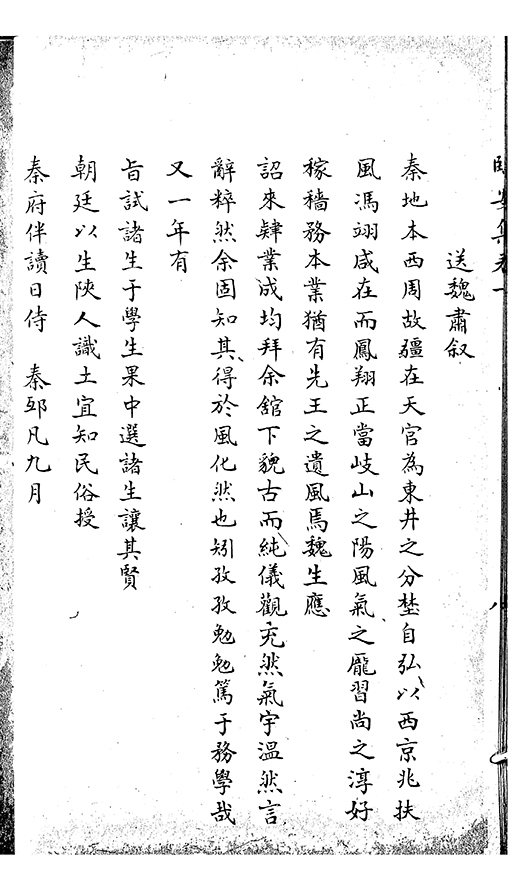 臨安集卷一
送魏肅叙
秦地本西周故疆在天官為東井之分埜自弘以西京兆扶
風馮翊咸在而鳳翔正當岐山之陽風氣之龎習尚之淳好
稼穡務本業猶有先王之遺風焉魏生應
詔來肄業成均拜余舘下貌古而純儀觀充然氣宇温然言
辭粹然余固知其得於風化然也矧孜孜勉勉篤于務學哉
又一年有
旨試諸生于學生果中選諸生讓其賢
朝廷以生陝人識土宜知民俗授
秦府伴讀日侍 秦邸凡九月